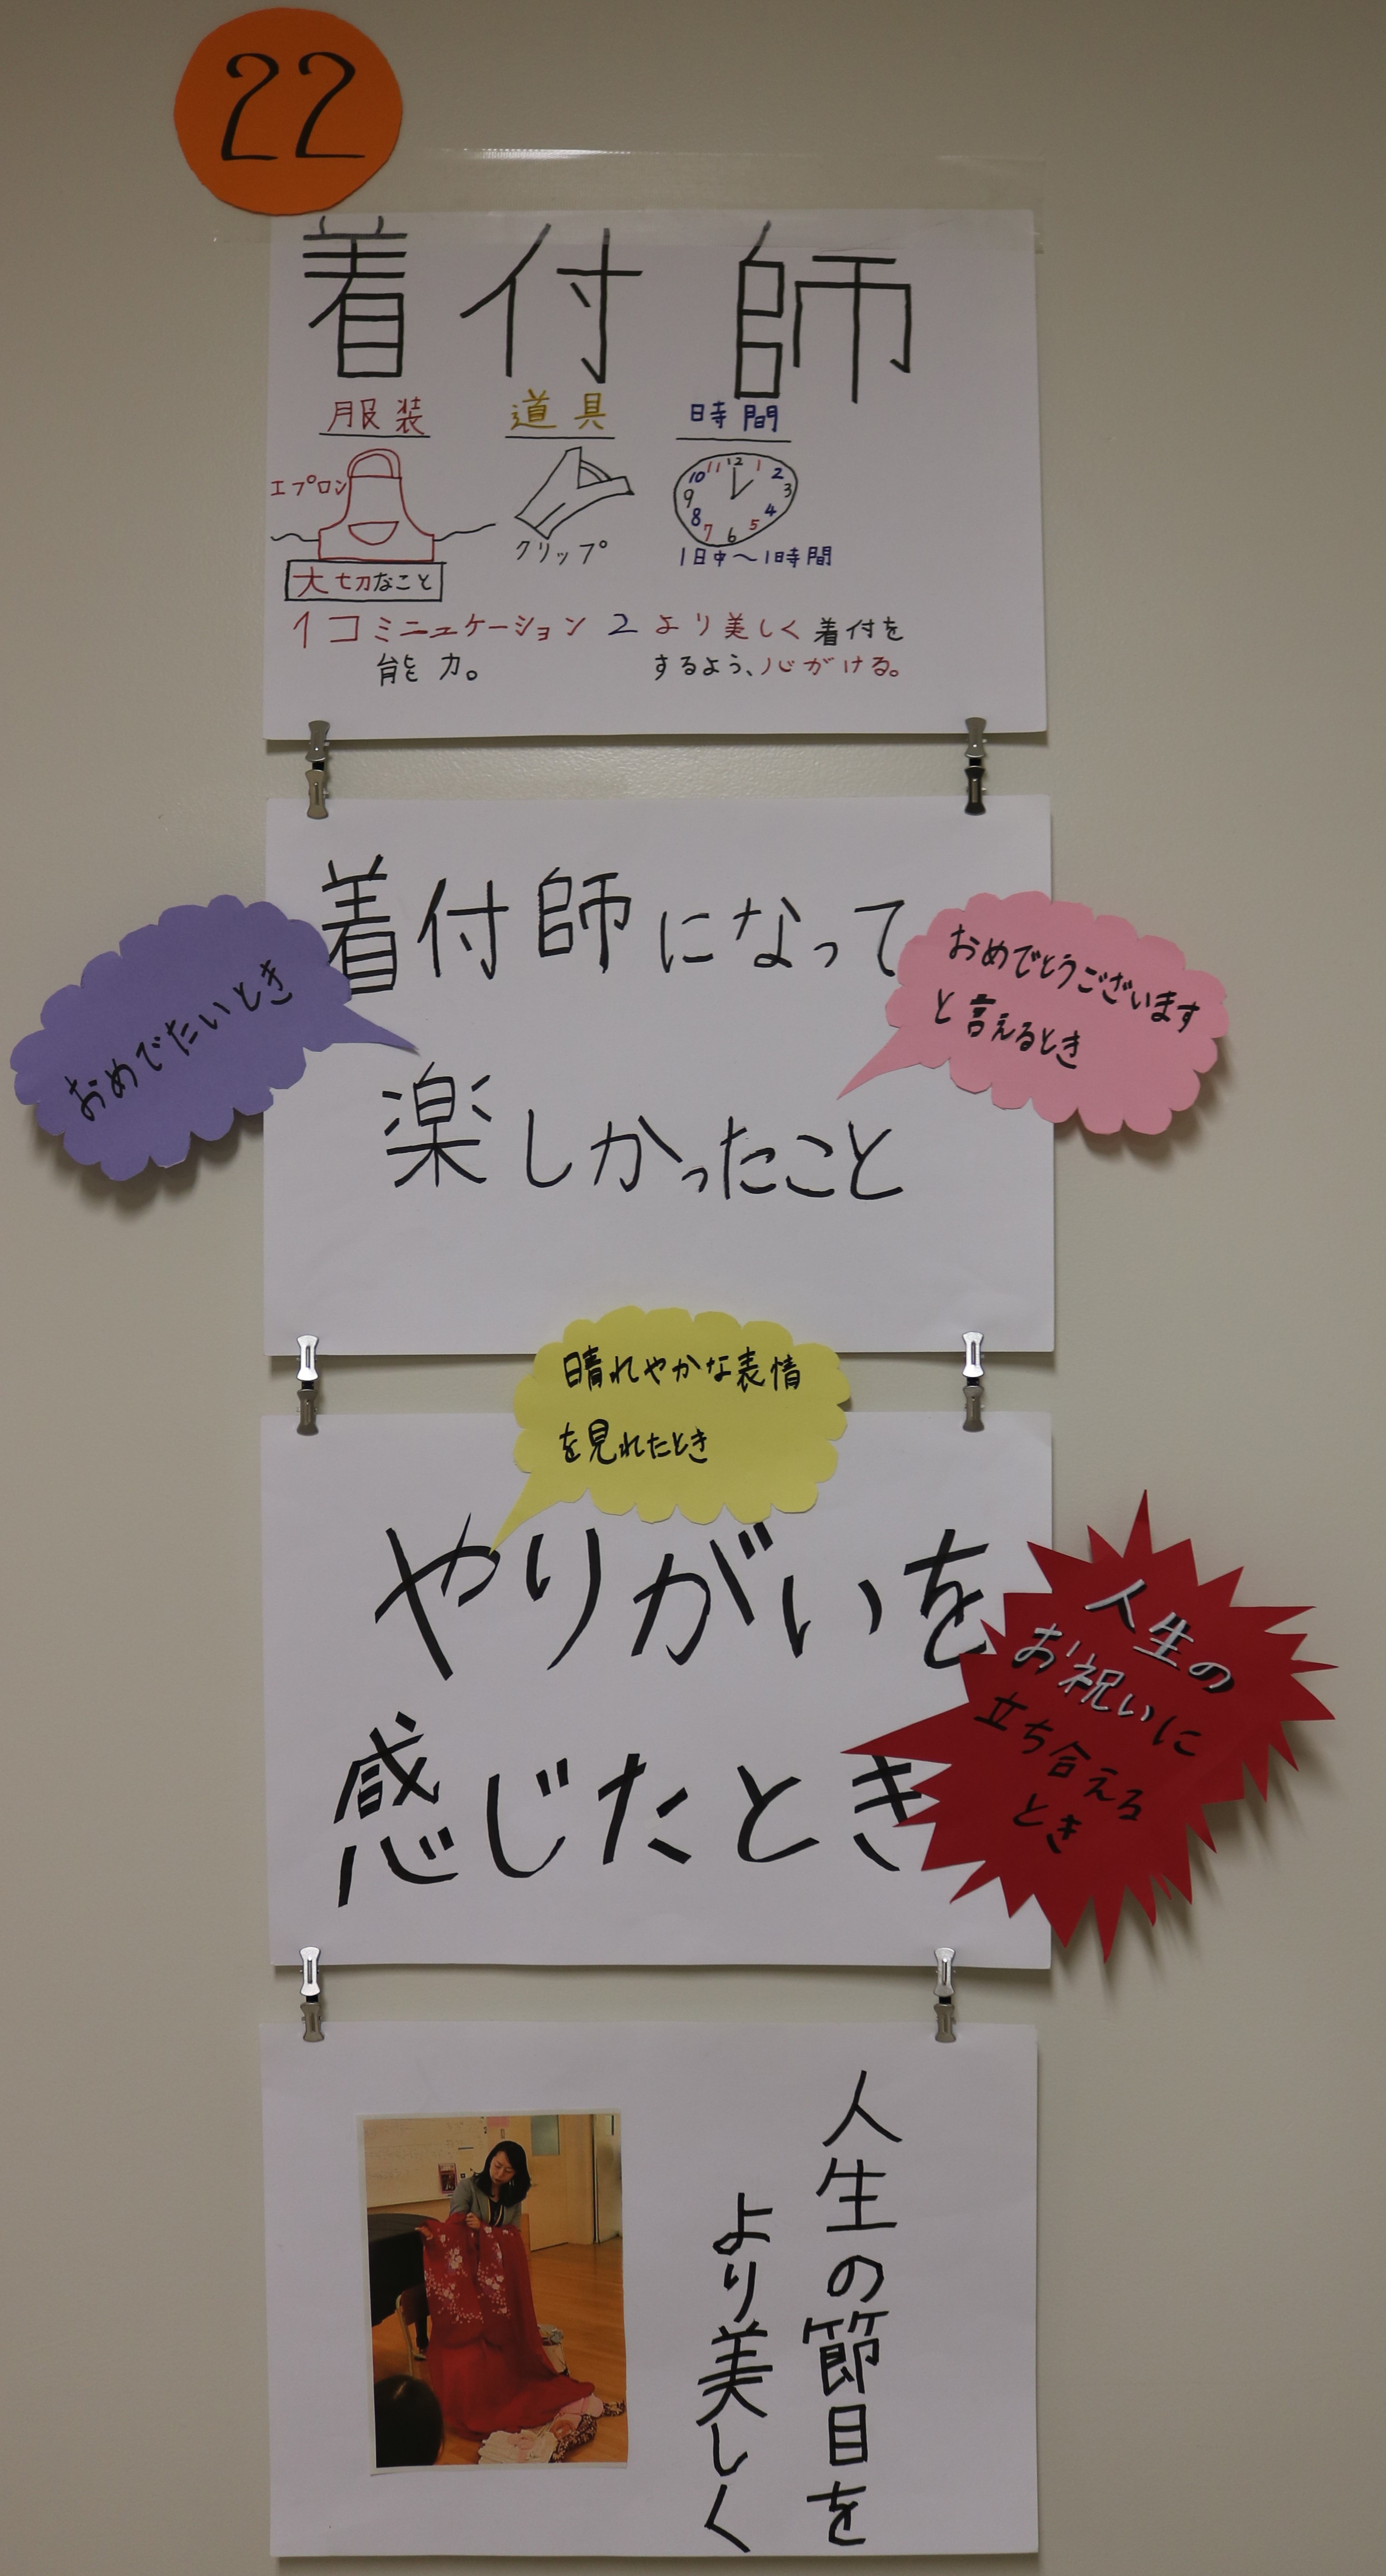 22
着付師
服装
道具
時間
エプロン
クリップ
12 1 2 3 4 5 6 7 8 9 10 11
1日中～1時間
大切なこと
1コミニュケーション
能力。
2より美しく着付を
するよう、心がける。
着付師になって
楽しかったこと
おめでたいとき
おめでとうございます
と言えるとき
晴れやかな表情
を見れたとき
やりがいを
感じたとき
人生の
お祝いに
立ち合える
とき
人生の節目を
より美しく